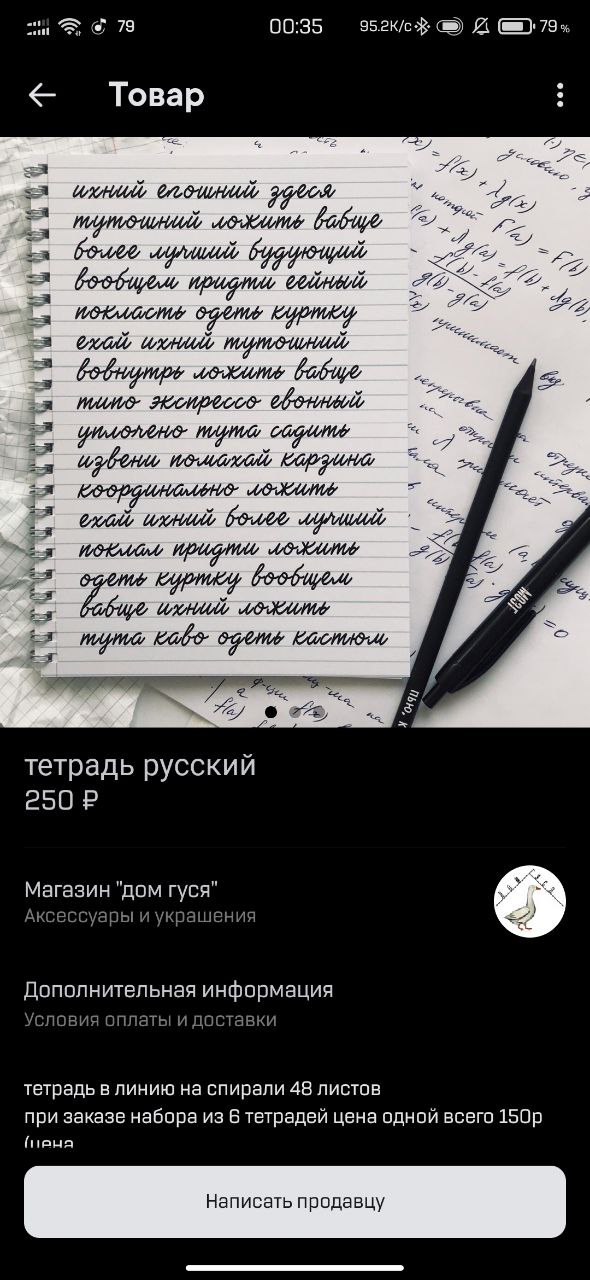 79
00:35
95.2K/c
79 %
Товар
ихний егошний здеся
тутошний ложить вабще
более лучший будующий
вообщем придти еейный
покласть одеть куртку
ехай ихний тутошний
вовнутрь ложить вабще
типо экспрессо евонный
уплочено тута садить
извени помахай карзина
координально ложить
ехай ихний более лучший
поклал придти ложить
одеть куртку вообщем
вабще ихний ложить
тута каво одеть костюм
условию
которой
F(a) = F(b)
принимает
вид
МОЗГ
пью, к
тетрадь русский
250 ₽
Магазин "дом гуся"
Аксессуары и украшения
Дополнительная информация
Условия оплаты и доставки
тетрадь в линию на спирали 48 листов
при заказе набора из 6 тетрадей цена одной всего 150р
(цена
Написать продавцу